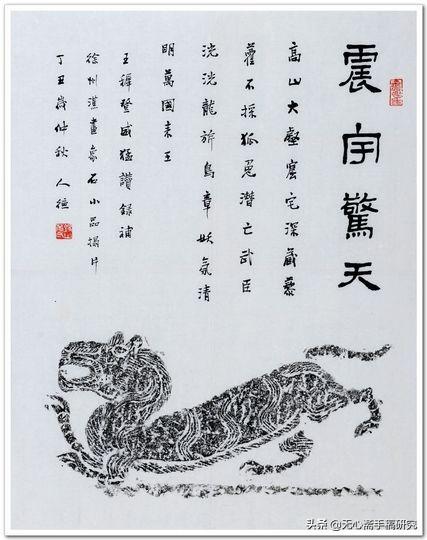 震宇驚天
高山大壑窟宅深藏藜
藿不採狐兔潜亡武臣
洸洸龍旂鳥章妖氛清
明萬國来王
王穉登威猛讚録補
徐州漢畫象石小品搨片
丁丑歲仲秋人德
头条 @无心斋手稿研究